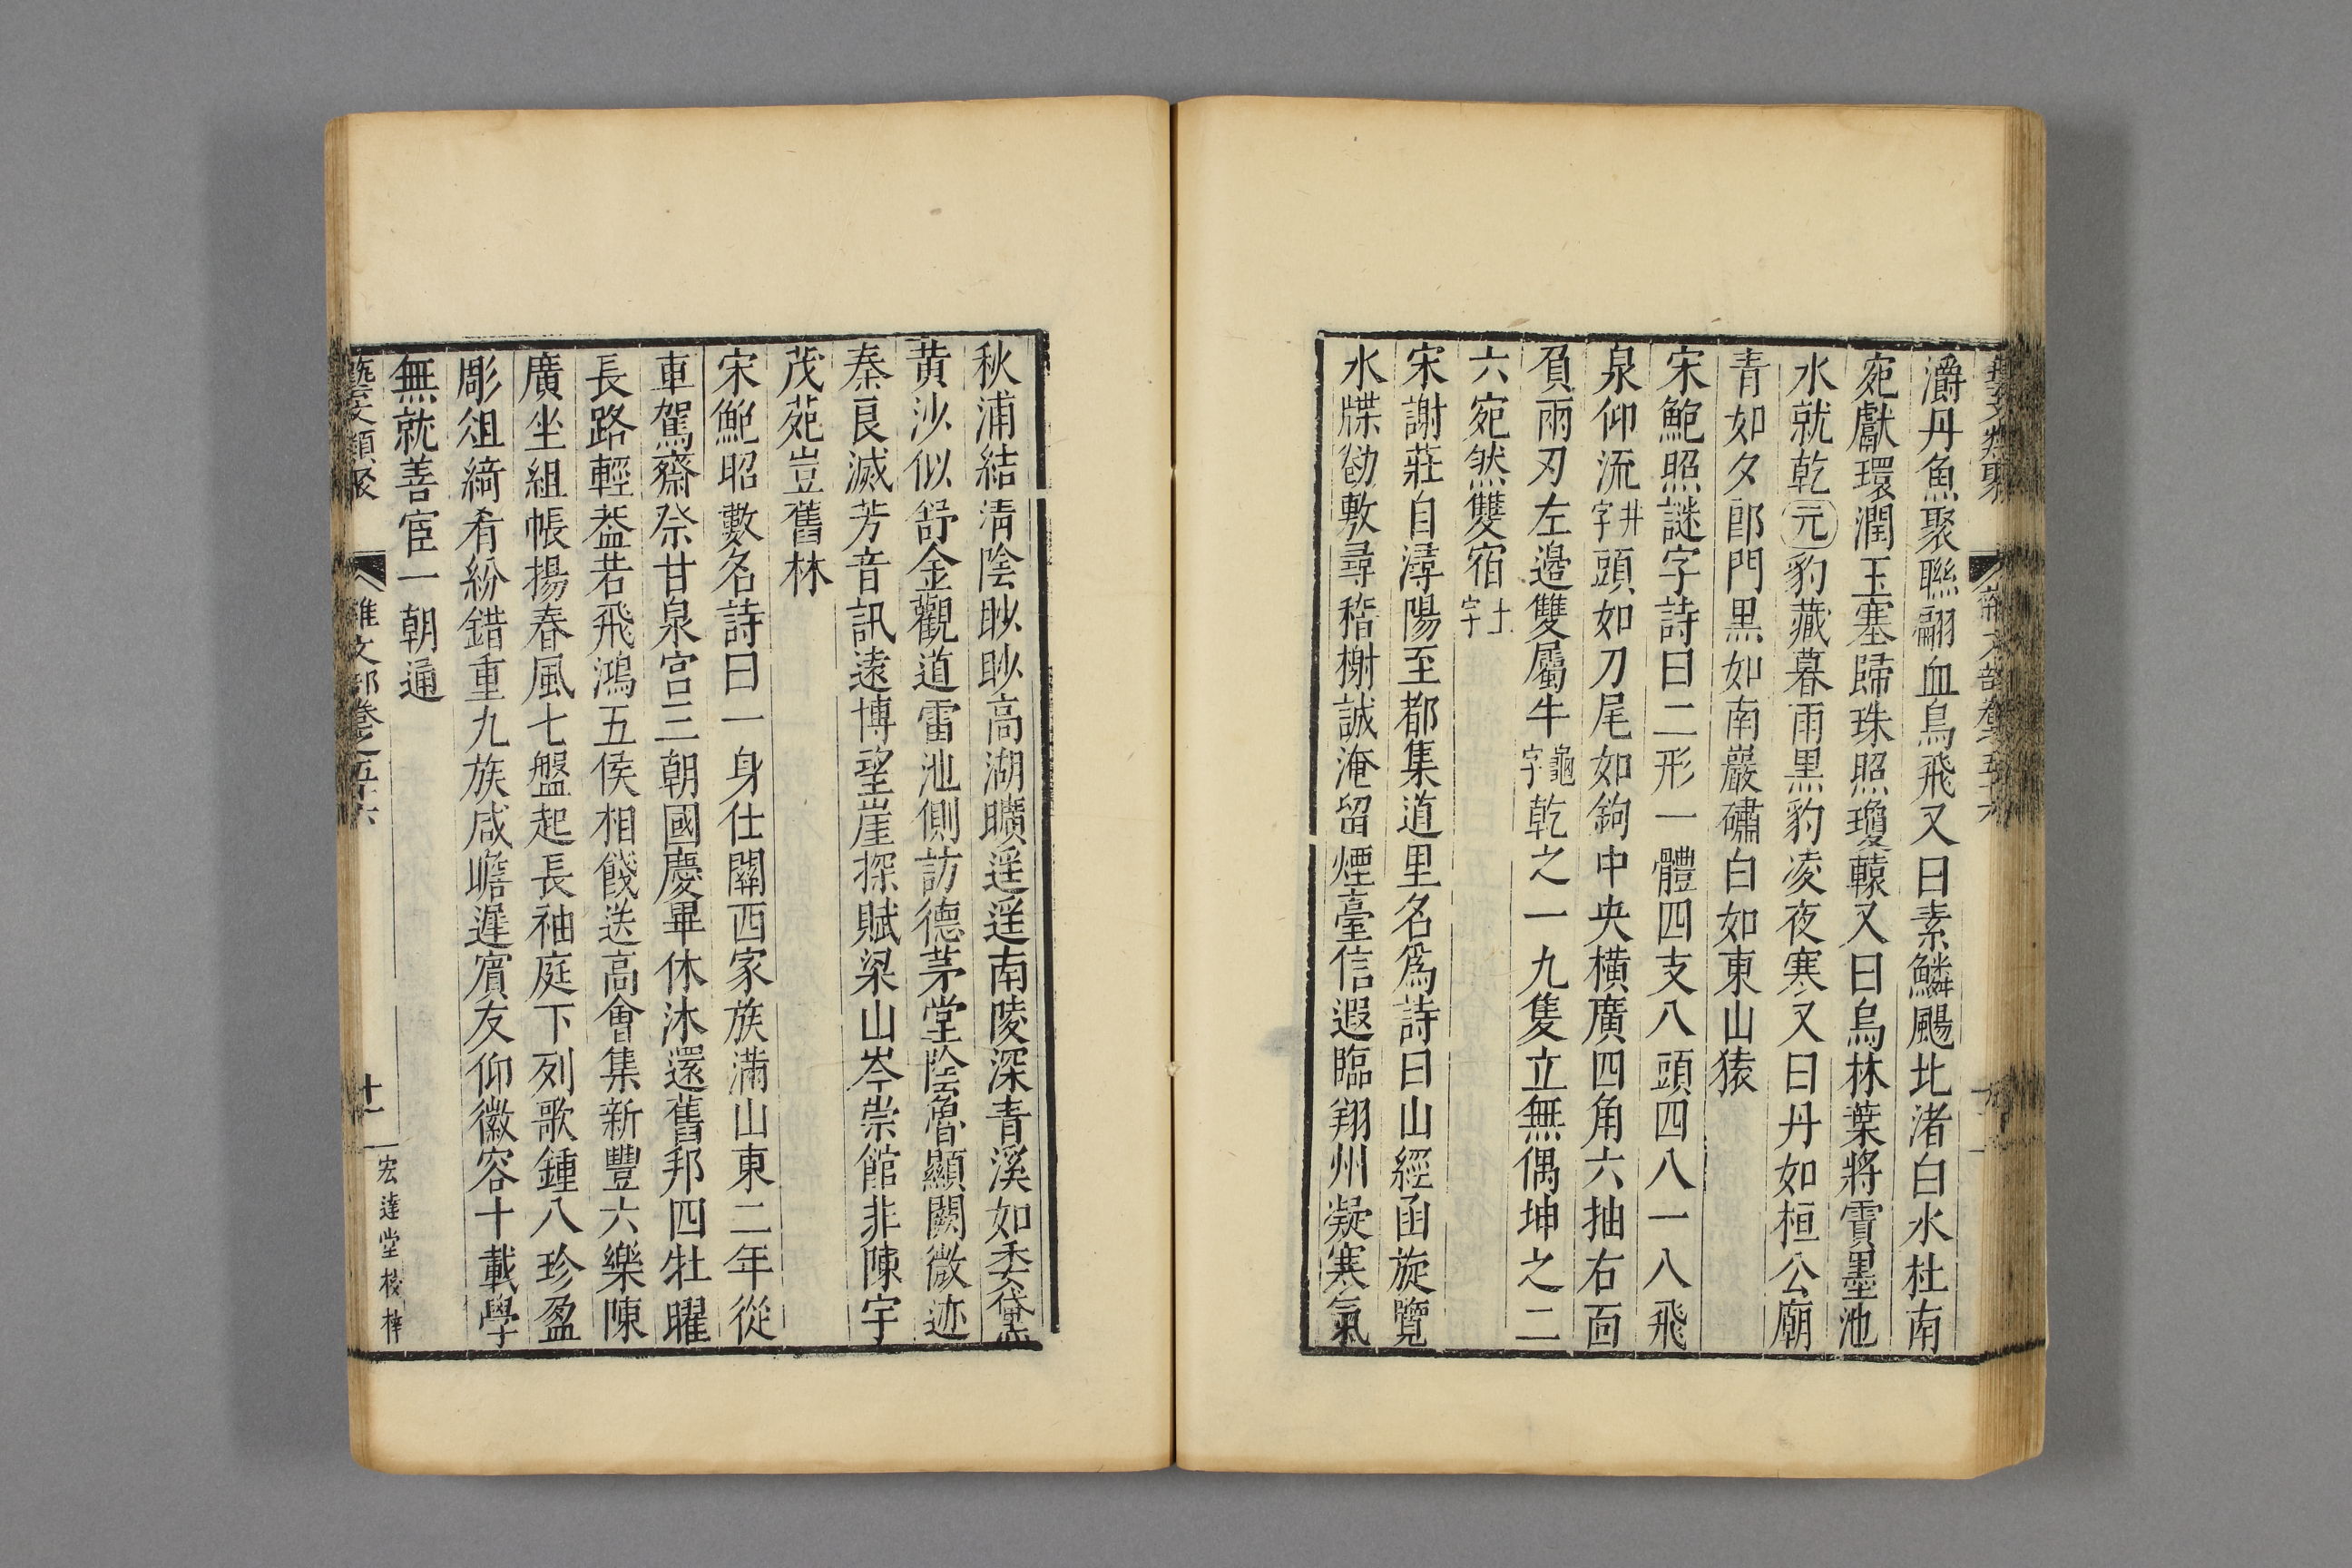 藝文類聚 雜文部卷之五十六
灂丹魚聚聯翩血鳥飛又曰素鱗颺北渚白水杜南
宛獻環潤玉塞歸珠照瓊轅又曰烏林葉將霣墨池
水就乾元豹藏暮雨黑豹凌夜寒又曰丹如桓公廟
青如夕郎門黑如南巖礵白如東山猿
宋鮑照謎字詩曰二形一體四支八頭四八一八飛
泉仰流井字頭如刀尾如鉤中央橫廣四角六抽右面
負兩刃左邊雙屬牛龜字乾之一九隻立無偶坤之二
六宛然雙宿土字
宋謝莊自潯陽至都集道里名爲詩曰山經亟旋覽
水牒勌敷尋稽榭誠淹留煙臺信遐臨翔州凝寒氣
秋浦結清陰眇眇高湖曠遥遥南陵深青溪如委黛
黄沙似舒金觀道雷池側訪德茅堂陰魯顯闕微迹
秦良滅芳音訊遠博望崖採賦梁山岑崇館非陳宇
茂苑豈舊林
宋鮑昭數名詩曰一身仕關西家族滿山東二年從
車駕齋祭甘泉宫三朝國慶畢休沐還舊邦四牡曜
長路輕葢若飛鴻五侯相餞送高會集新豐六樂陳
廣坐組帳揚春風七盤起長袖庭下列歌鍾八珍盈
彫俎綺肴紛錯重九族咸瞻遲賓友仰徽容十載學
無就善宦一朝通
藝文類聚 雜文部卷之五十六 十一 宏達堂校梓